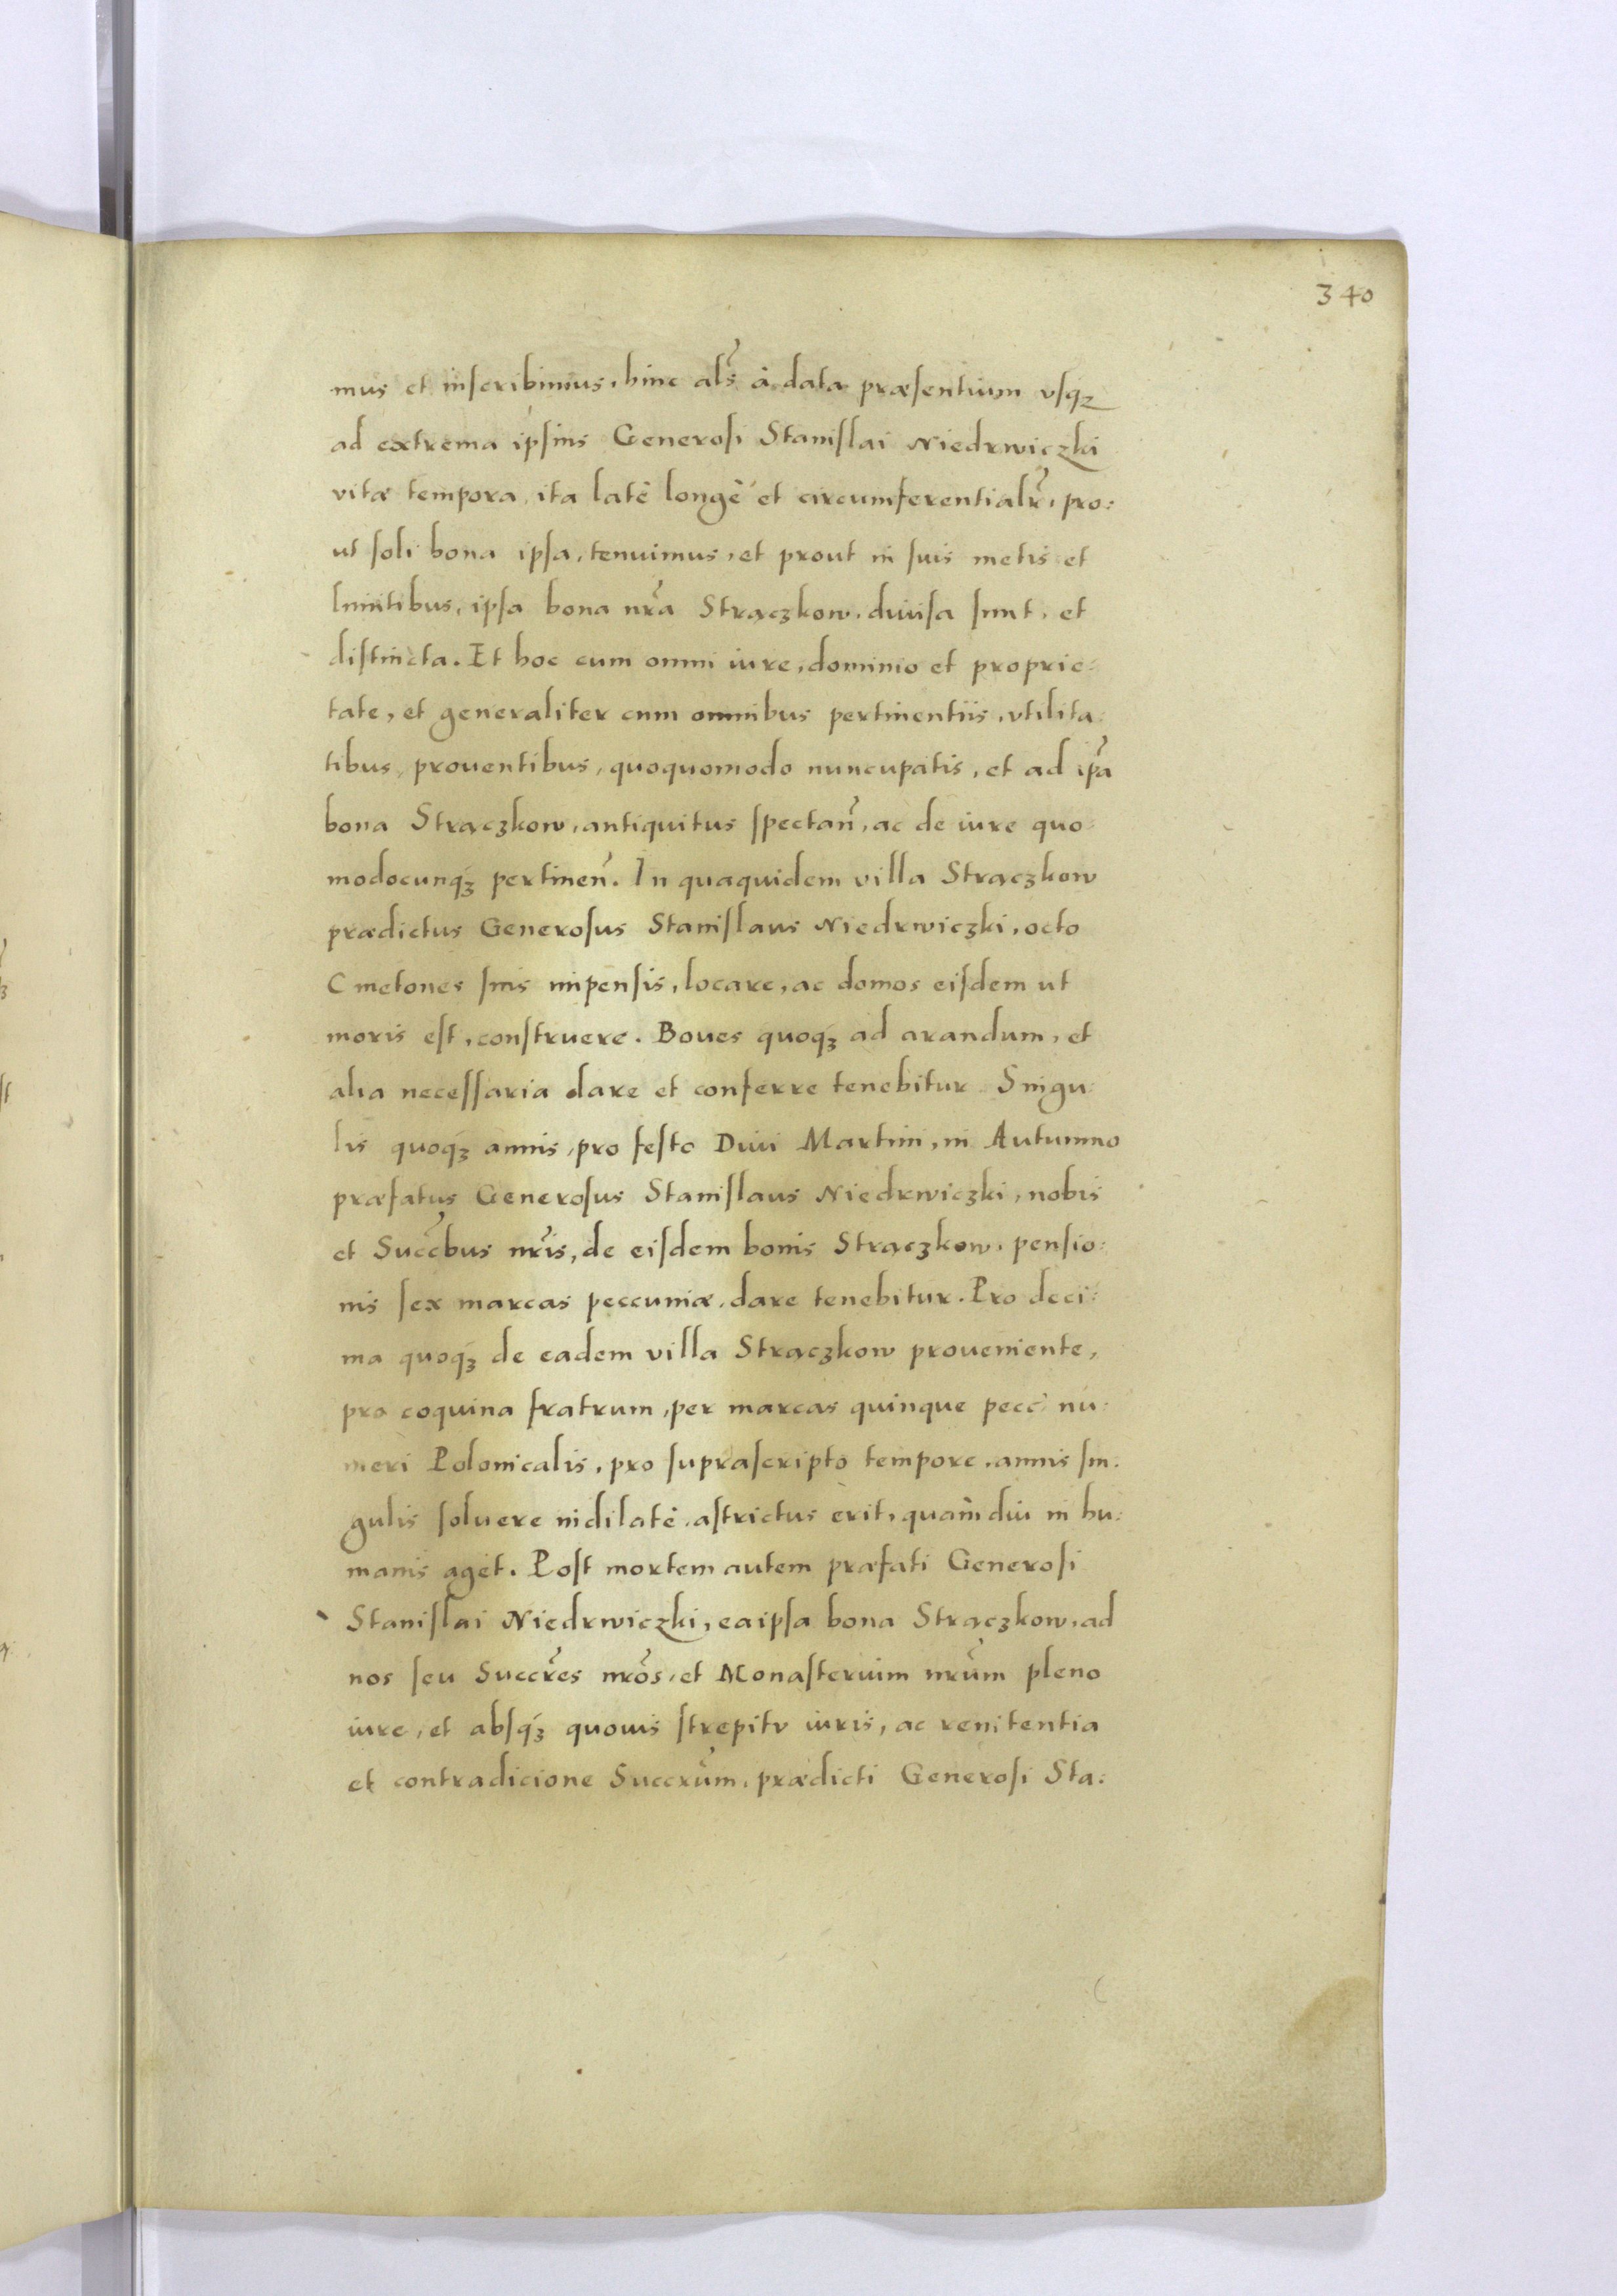 340
mus et inscribimus, hinc als̃ à data præsentium vsqꝫ
ad extrema ipsius Generosi Stanislai Niedrwiczki
vitæ tempora, ita latè longè et circumferentialr̃, pro:
ut soli bona ipsa, tenuimus, et prout in suis metis et
limitibus, ipsa bona nr̃a Strączkow, diuisa sunt, et
distincta. Et hoc cum omni iure, dominio et proprie:
tate, et generaliter cum omnibus pertinentiis, vtilita:
tibus, prouentibus, quoquomodo nuncupatis, et ad ip̃a
bona Strączkow, antiquitus spectañ, ac de iure quo:
modocunqꝫ pertineñ. In quaquidem villa Strączkow
prædictus Generosus Stanislaus Niedrwiczki, octo
Cmetones suis impensis, locare, ac domos eisdem ut
moris est, construere. Boues quoqꝫ ad arandum, et
alia necessaria dare et conferre tenebitur Singu:
lis quoqꝫ annis, pro festo Diui Martini, in Autumno
præfatus Generosus Stanislaus Niedrwiczki, nobis
et Succ̃bus nr̃is, de eisdem bonis Strączkow, pensio:
nis sex marcas peccuniæ, dare tenebitur. Pro deci:
ma quoqꝫ de eadem villa Strączkow proueniente,
pro coquina fratrum, per marcas quinque pecc̃ nu:
meri Polonicalis, pro suprascripto tempore, annis sin:
gulis soluere indilatè, astrictus erit, quamdiu in hu:
manis aget. Post mortem autem præfati Generosi
Stanislai Niedrwiczki, eaipsa bona Strączkow, ad
nos seu Succr̃es nr̃os, et Monasterium nr̃um pleno
iure, et absqꝫ quouis strepitv iuris, ac renitentia
et contradicione Succr̃um, prædicti Generosi Sta: